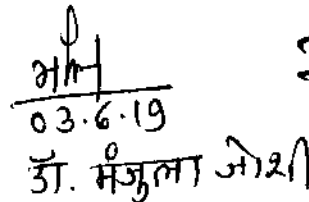 03.6.19
डॉ. मंजुला जोशी